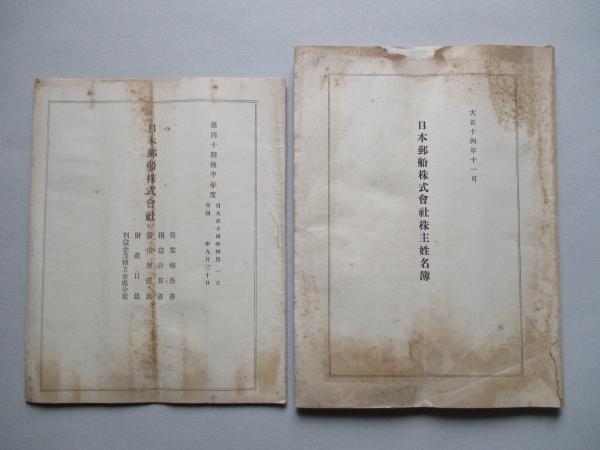 大正十四年十一月
日本郵船株式會社株主姓名簿
第四十期後半年度
自大正十四年四月一日
至同年九月三十日
日本郵船株式會社
營業報告書
損益計算書
貸借對照表
財産目錄
利益金及積立金處分案